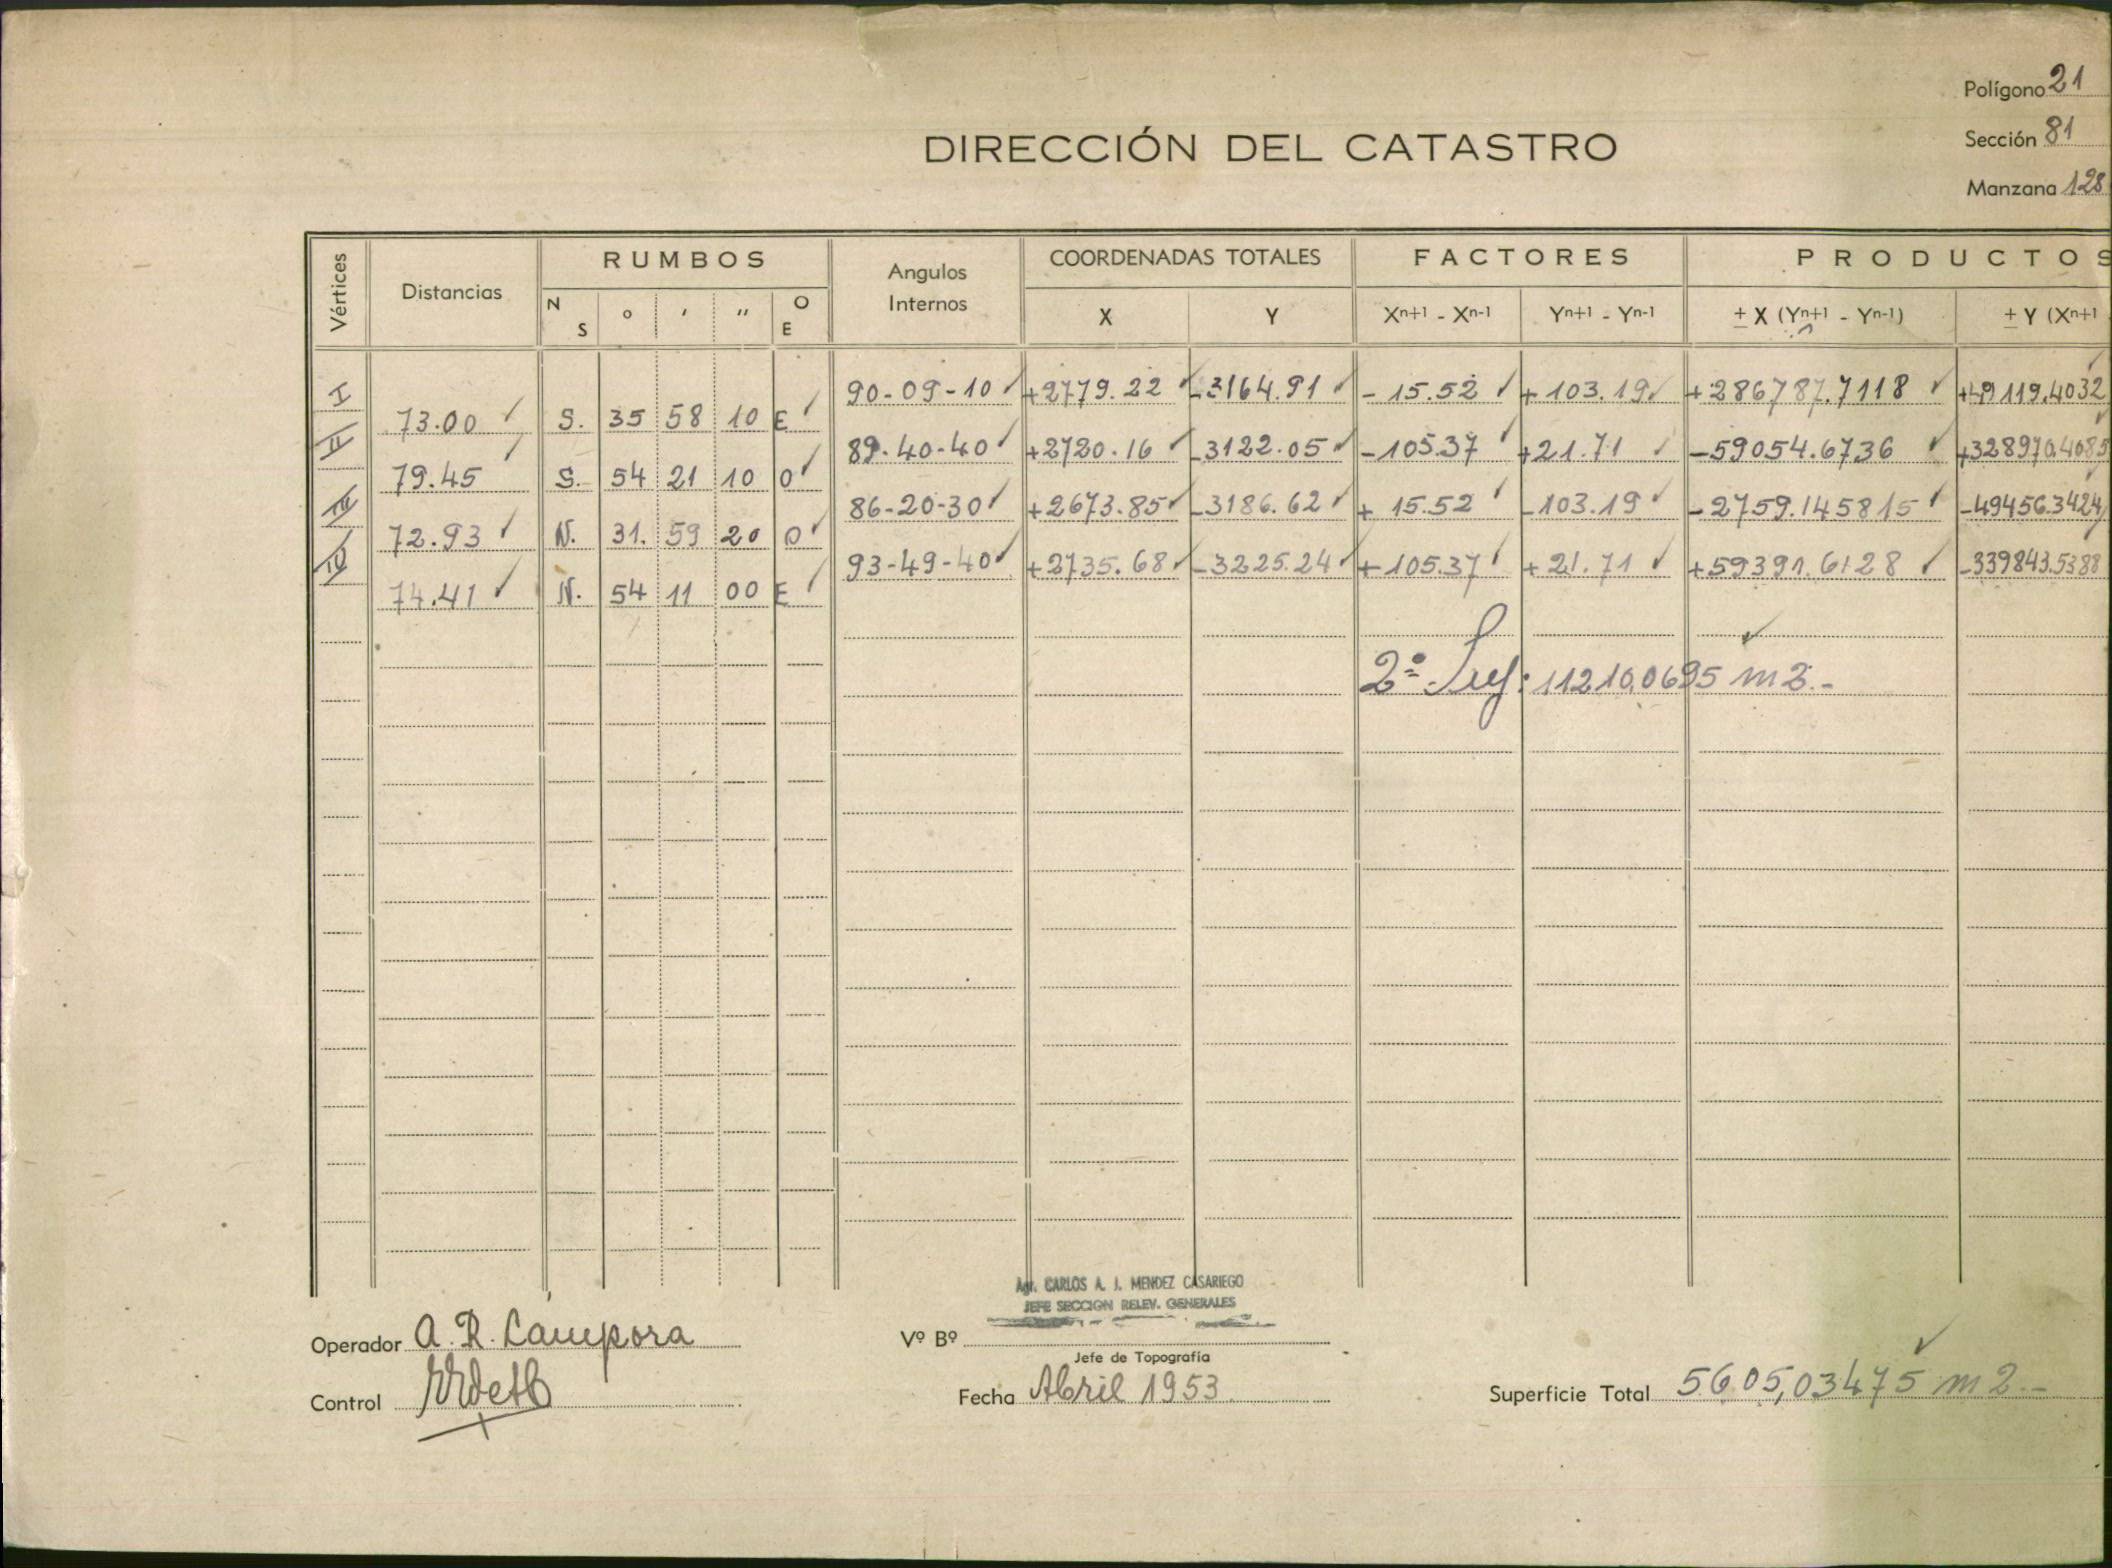 Polígono 21
DIRECCIÓN DEL CATASTRO
Sección 81
Manzana 128
Vértices Distancias RUMBOS Angulos Internos COORDENADAS TOTALES FACTORES PRODUCTOS
N S ° ' " O E X Y Xn+1 - Xn-1 Yn+1 - Yn-1 ± X (Yn+1 - Yn-1) ± Y (Xn+1
I 90-09-10 +2779.22 -3164.91 - 15.52 + 103.19 +286787.7118 +49119.4032
73.00 S. 35 58 10 E
II 89-40-40 +2720.16 -3122.05 -105.37 +21.71 -59054.6736 +328970.4085
79.45 S. 54 21 10 O
III 86-20-30 +2673.85 -3186.62 + 15.52 -103.19 -2759.145815 -49456.3424
72.93 N. 31. 59 20 O
IV 93-49-40 +2735.68 -3225.24 +105.37 +21.71 +59391.6128 -339843.5388
74.41 N. 54 11 00 E
2ª Sup: 11210.0695 m2.-
Agr. CARLOS A. J. MENDEZ CASARIEGO
JEFE SECCION RELEV. GENERALES
Operador A. R. Lampora Vº Bº
Jefe de Topografía
Control Fecha Abril 1953 Superficie Total 5605,03475 m2.-